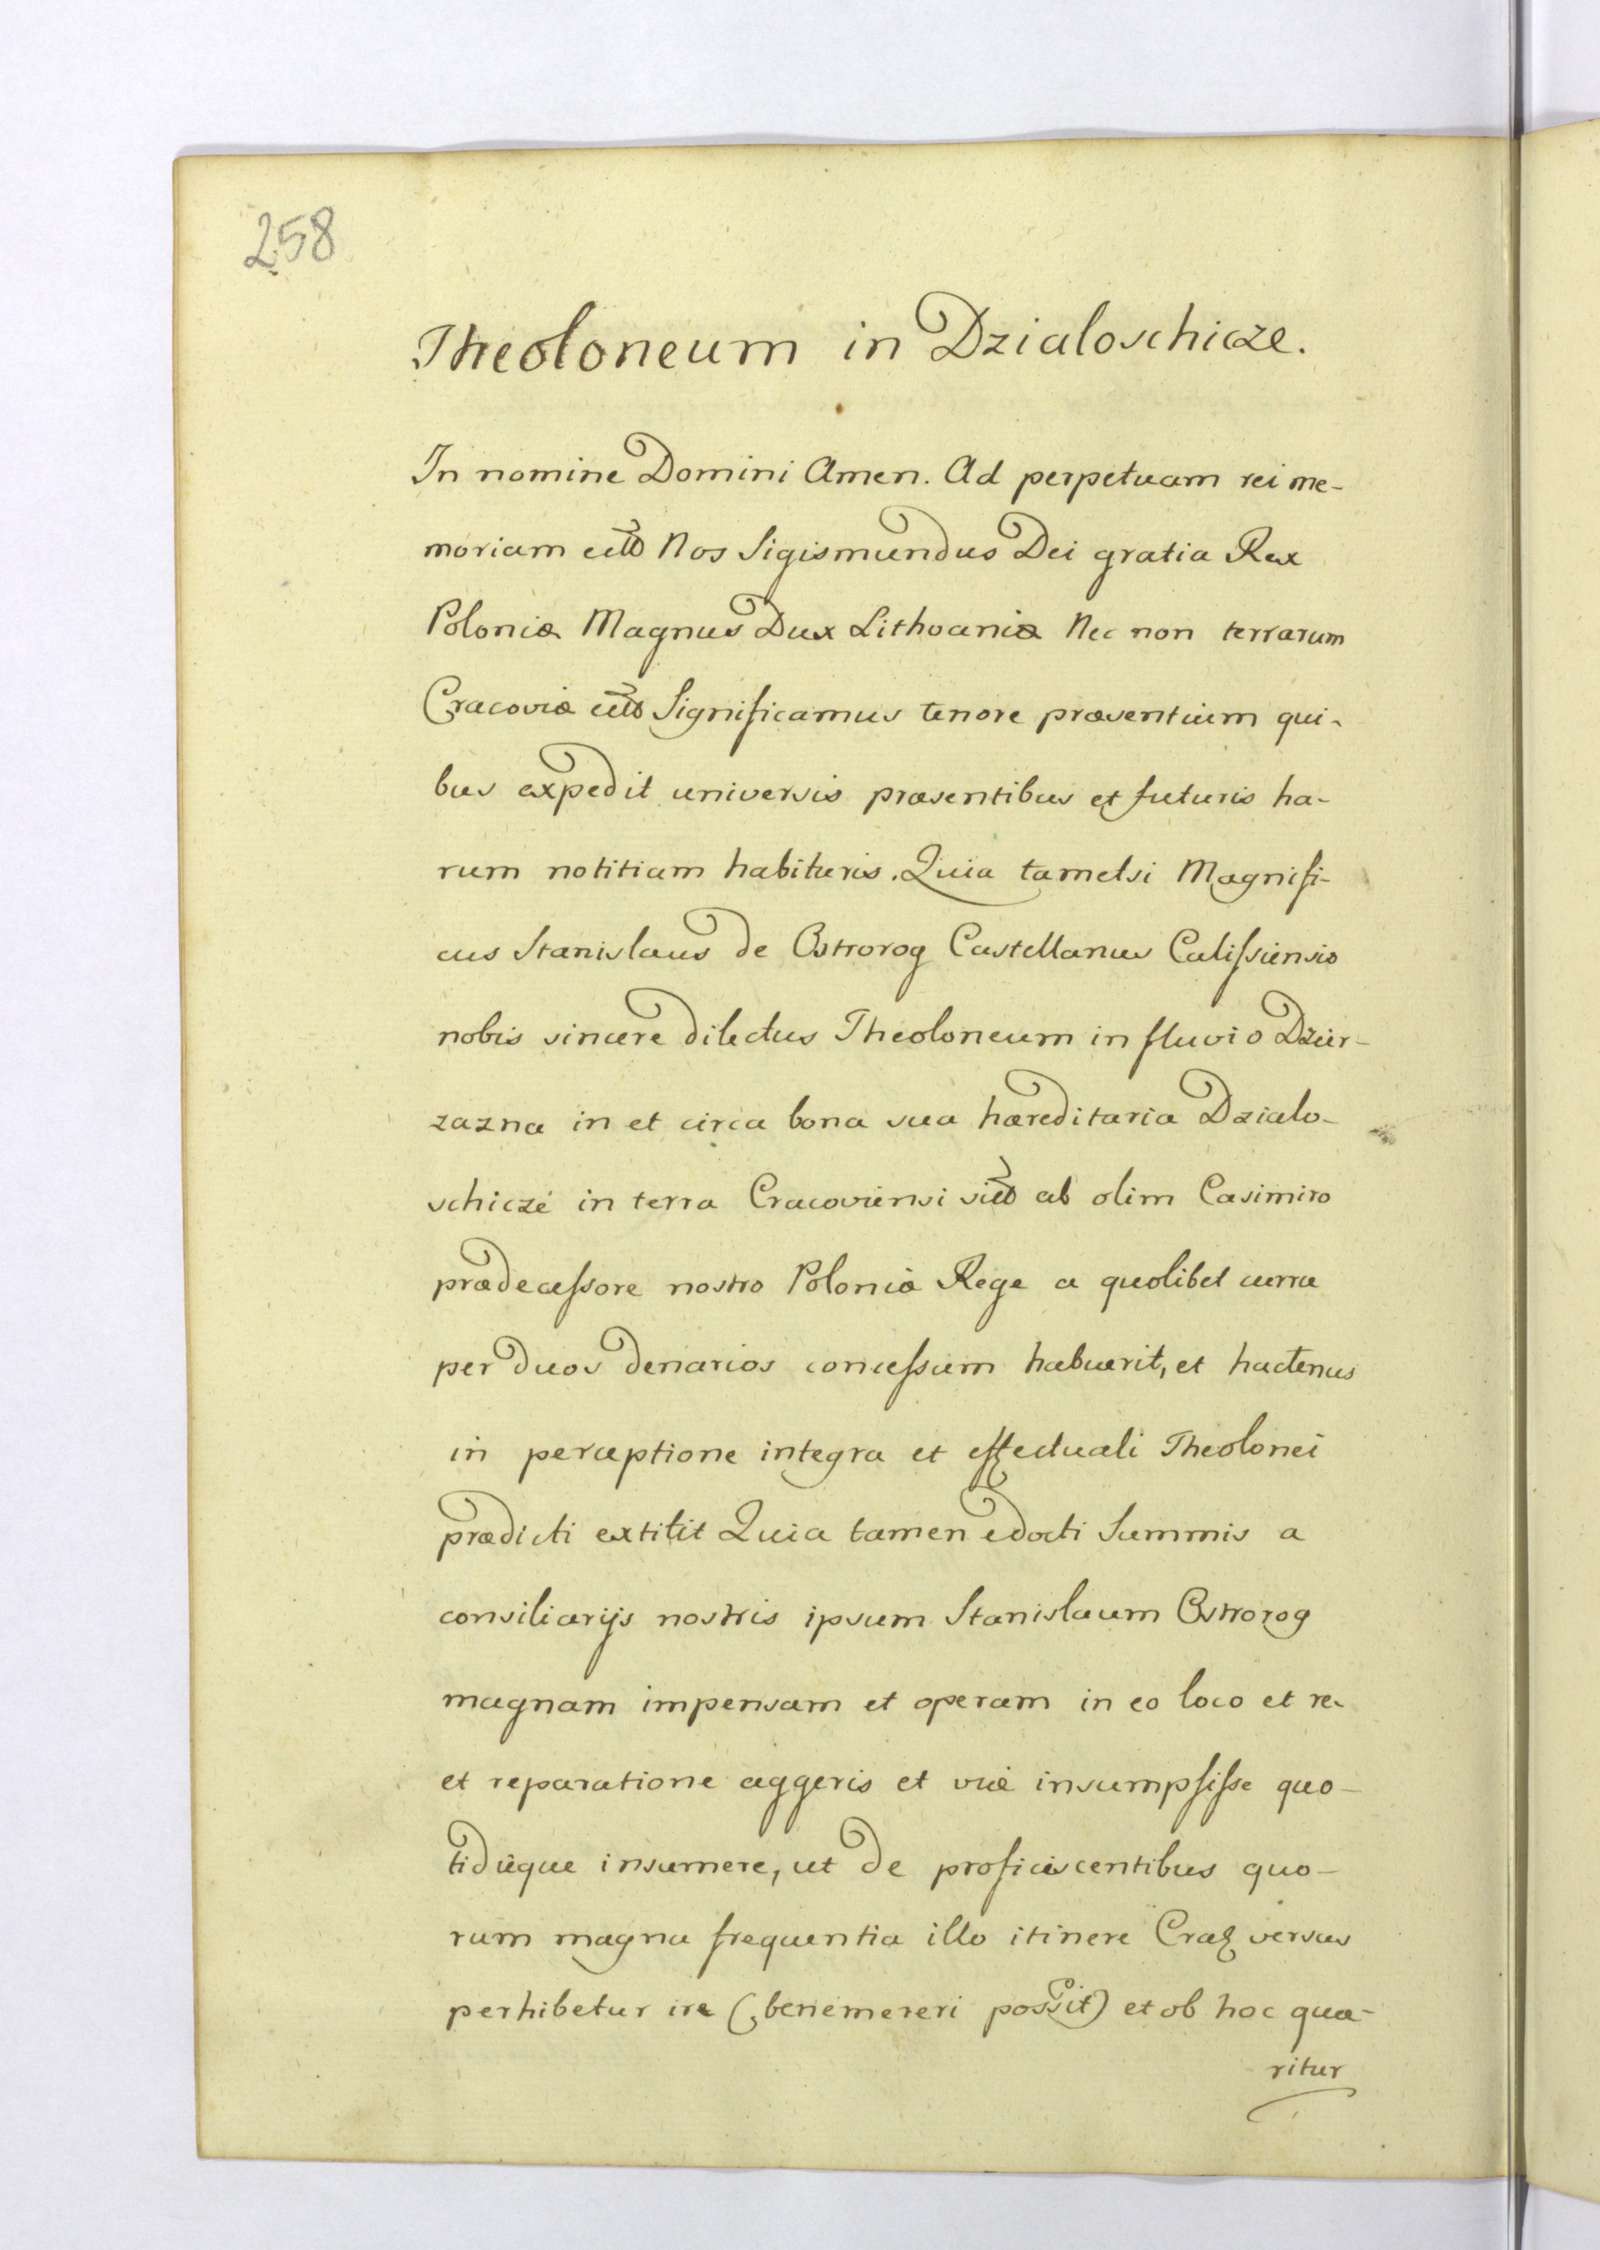 258
Theoloneum in Dzialoschicze.
In nomine Domini Amen. Ad perpetuam rei me-
moriam etc Nos Sigismundus Dei gratia Rex
Poloniæ Magnus Dux Lithvaniæ Nec non terrarum
Cracoviæ etc Significamus tenore præsentium qui-
bus expedit universis præsentibus et futuris ha-
rum notitiam habituris. Quia tametsi Magnifi-
cus Stanislaus de Ostrorog Castellanus Calissiensis
nobis sincere dilectus Theoloneum in fluvio Dzier-
zazna in et circa bona sua hæreditaria Dzialo-
schicze in terra Cracoviensi ab olim Casimiro
prædecessore nostro Poloniæ Rege a quolibet curru
per duos denarios concessum habuerit, et hactenus
in perceptione integra et effectuali Theolonei
prædicti extitit Quia tamen edocti Summis a
consiliarijs nostris ipsum Stanislaum Ostrorog
magnam impensam et operam in eo loco et re-
et reparatione aggeris et viæ insumpsisse quo-
tidieque insumere, ut de proficiscentibus quo-
rum magna frequentia illo itinere versus
perhibetur ire (benemereri possit) et ob hoc quæ-
ritur